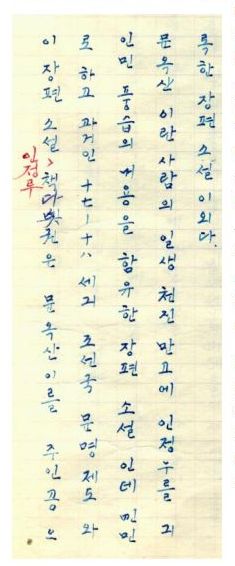 인정루
이 장편 소설 > 책 권은 문옥산이를 주인공으
로 하고 과거인 十七-十八 세긔 조센국 문명 제도와
인민 풍습의 내용을 함유한 장편 소설 인데
문옥산 이란 사람의 일생 천진 만고에 인정누를 긔
록한 장편 소설이외다.